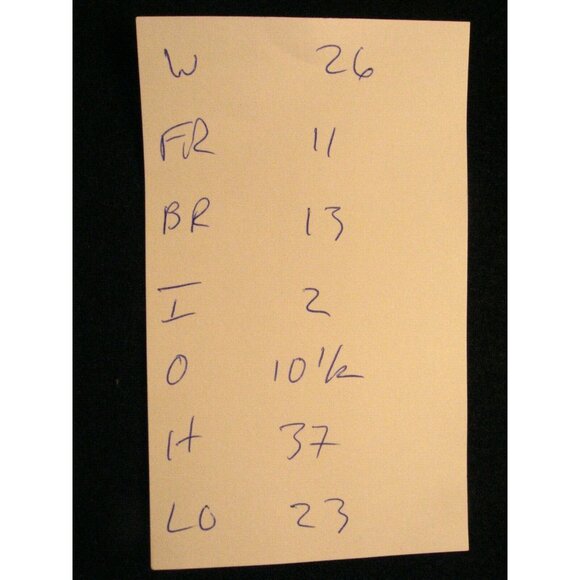 W 26
FR 11
BR 13
I 2
O 10 1/2
H 37
LO 23